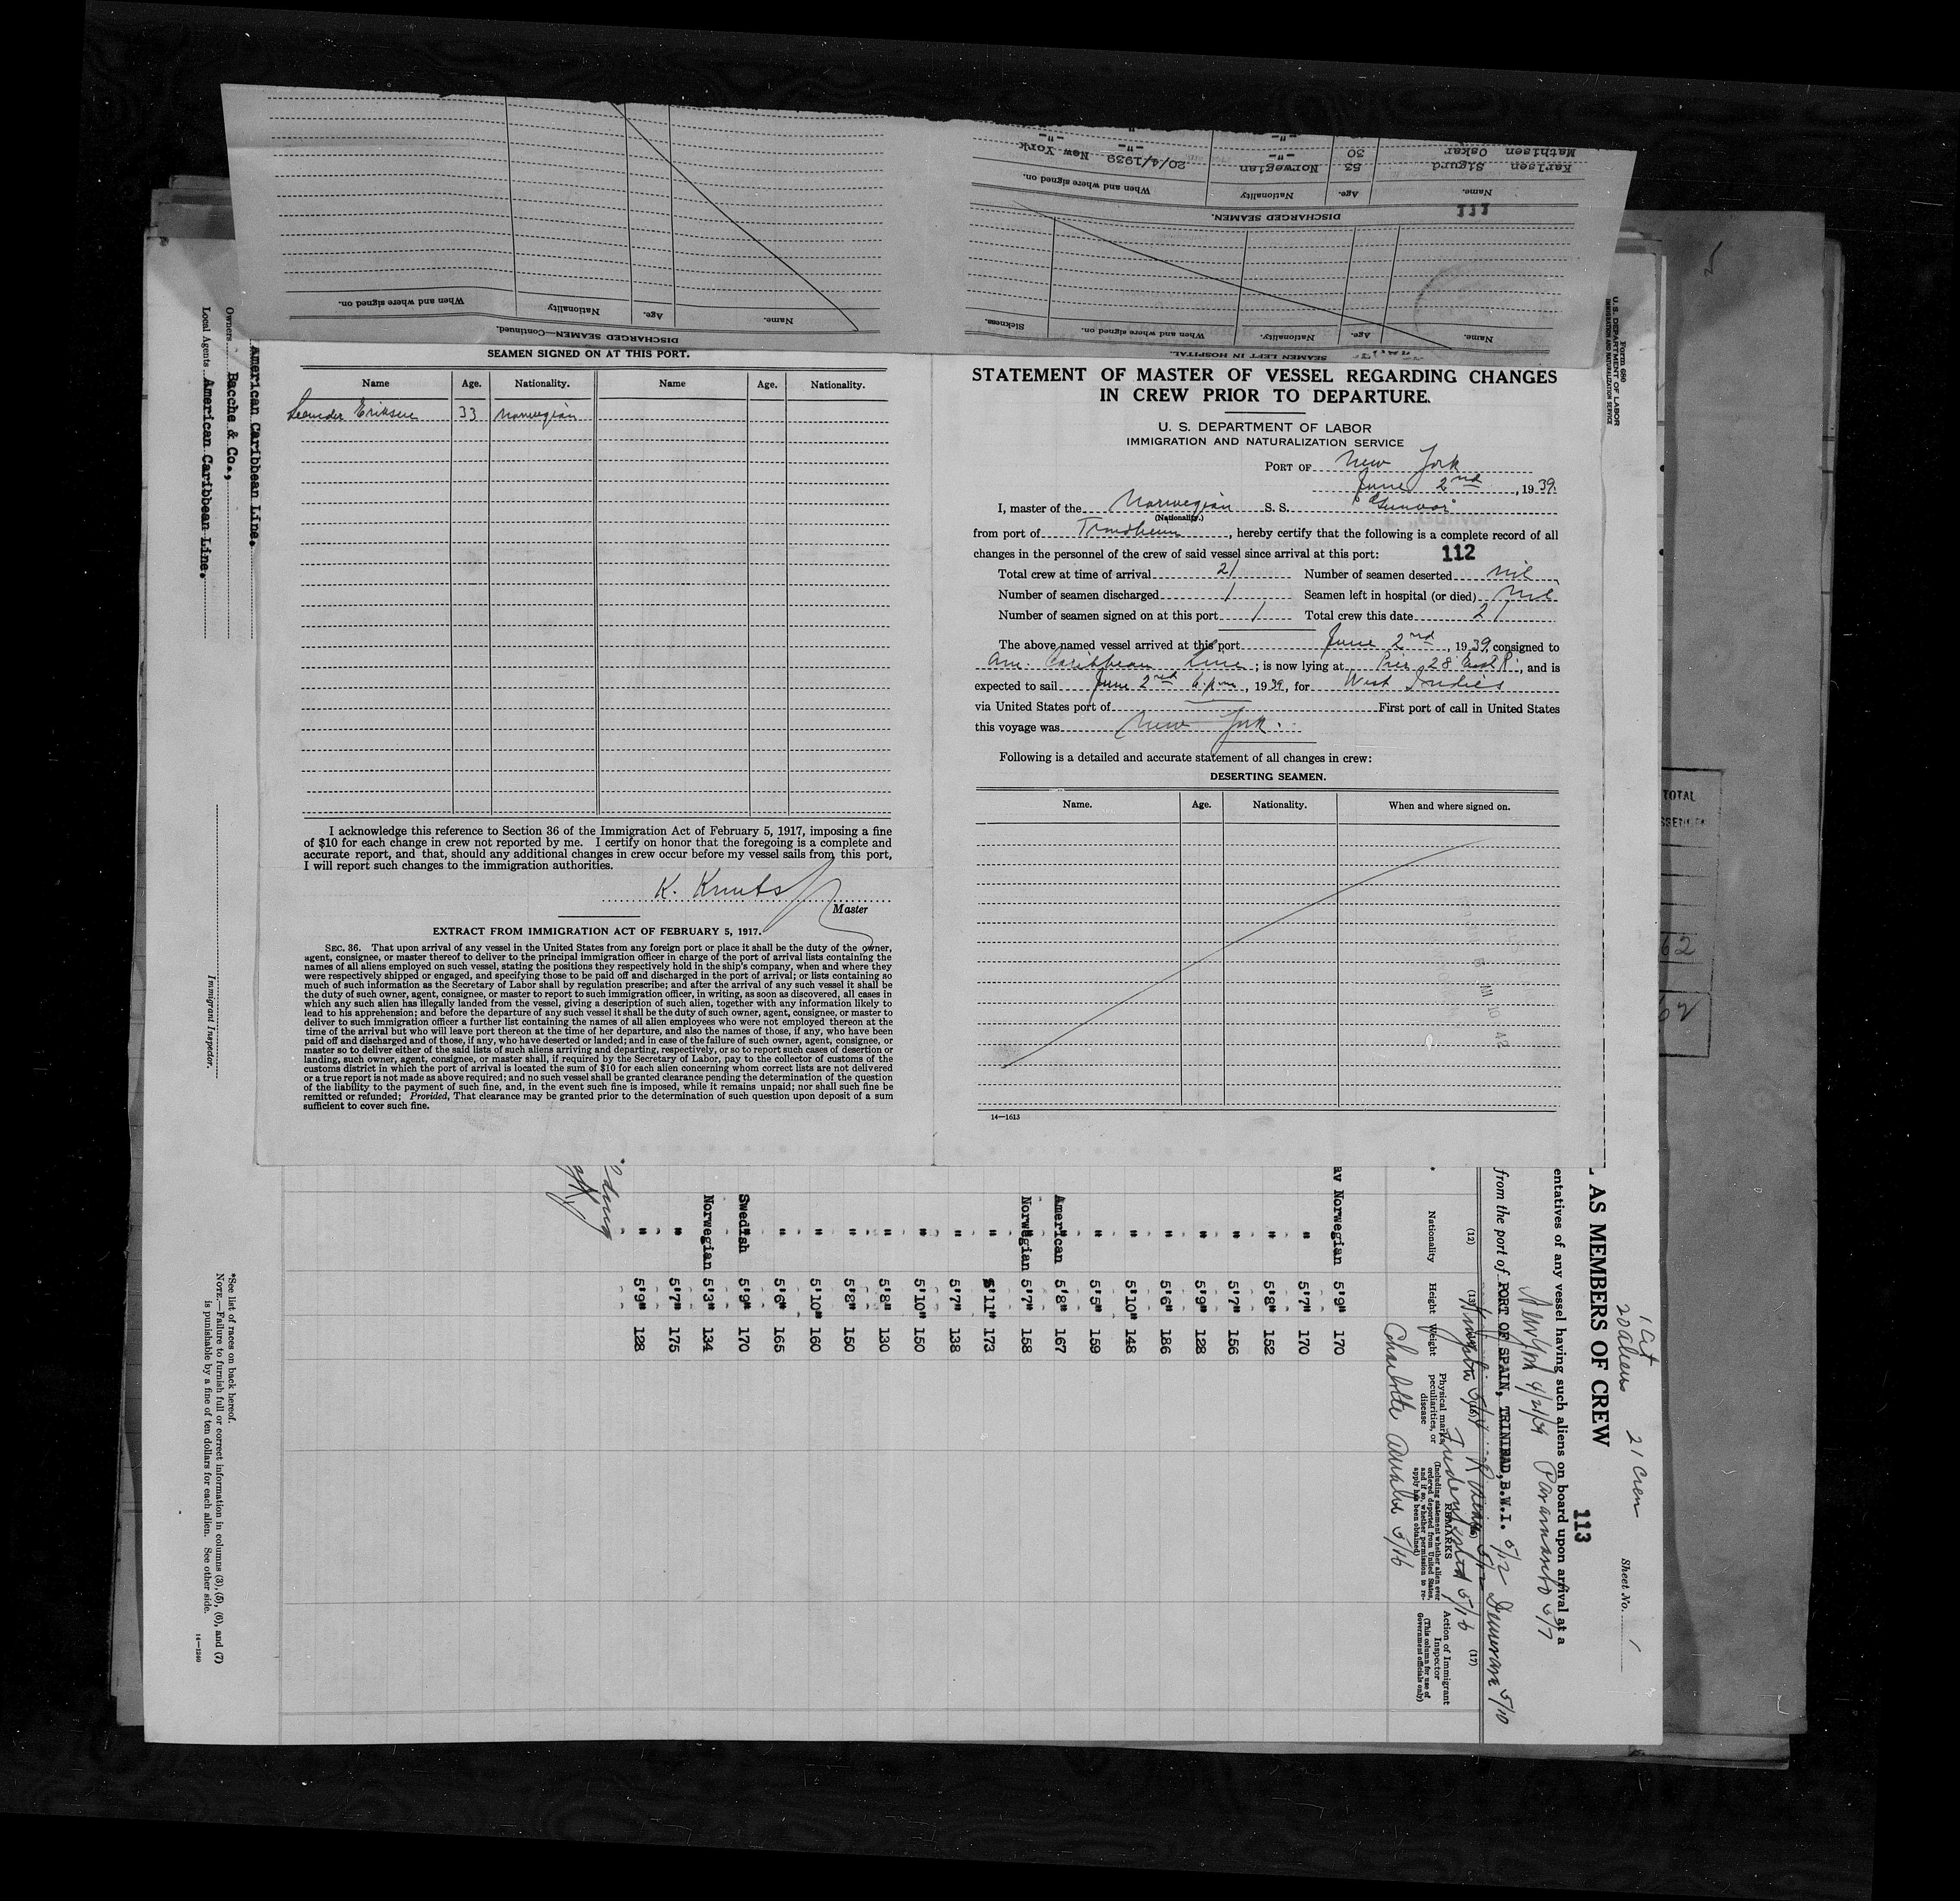 DISCHARGED SEAMEN—Continued.
Name. Age. Nationality When and where signed on.
SEAMEN LEFT IN HOSPITAL.
Name. Age. Nationality. When and where signed on. Sickness.
111
DISCHARGED SEAMEN.
Name. Age. Nationality When and where signed on.
Karlsen Sigurd 53 Norwegian 20/4/1939 New York
Mathisen Oskar 30 -"- -"- -"-
SEAMEN SIGNED ON AT THIS PORT.
Name Age. Nationality. Name Age. Nationality.
Leander Eriksen 33 Norwegian
I acknowledge this reference to Section 36 of the Immigration Act of February 5, 1917, imposing a fine
of $10 for each change in crew not reported by me. I certify on honor that the foregoing is a complete and
accurate report, and that, should any additional changes in crew occur before my vessel sails from this port,
I will report such changes to the immigration authorities.
K. Knuts
Master
EXTRACT FROM IMMIGRATION ACT OF FEBRUARY 5, 1917.
SEC. 36. That upon arrival of any vessel in the United States from any foreign port or place it shall be the duty of the owner,
agent, consignee, or master thereof to deliver to the principal immigration officer in charge of the port of arrival lists containing the
names of all aliens employed on such vessel, stating the positions they respectively hold in the ship's company, when and where they
were respectively shipped or engaged, and specifying those to be paid off and discharged in the port of arrival; or lists containing so
much of such information as the Secretary of Labor shall by regulation prescribe; and after the arrival of any such vessel it shall be
the duty of such owner, agent, consignee, or master to report to such immigration officer, in writing, as soon as discovered, all cases in
which any such alien has illegally landed from the vessel, giving a description of such alien, together with any information likely to
lead to his apprehension; and before the departure of any such vessel it shall be the duty of such owner, agent, consignee, or master to
deliver to such immigration officer a further list containing the names of all alien employees who were not employed thereon at the
time of the arrival but who will leave port thereon at the time of her departure, and also the names of those, if any, who have been
paid off and discharged and of those, if any, who have deserted or landed; and in case of the failure of such owner, agent, consignee, or
master so to deliver either of the said lists of such aliens arriving and departing, respectively, or so to report such cases of desertion or
landing, such owner, agent, consignee, or master shall, if required by the Secretary of Labor, pay to the collector of customs of the
customs district in which the port of arrival is located the sum of $10 for each alien concerning whom correct lists are not delivered
or a true report is not made as above required; and no such vessel shall be granted clearance pending the determination of the question
of the liability to the payment of such fine, and, in the event such fine is imposed, while it remains unpaid; nor shall such fine be
remitted or refunded; Provided, That clearance may be granted prior to the determination of such question upon deposit of a sum
sufficient to cover such fine.
STATEMENT OF MASTER OF VESSEL REGARDING CHANGES
IN CREW PRIOR TO DEPARTURE.
U. S. DEPARTMENT OF LABOR
IMMIGRATION AND NATURALIZATION SERVICE
PORT OF New York
June 2nd, 1939.
I, master of the Norwegian S. S. Gunvor
(Nationality.)
from port of Trondheim, hereby certify that the following is a complete record of all
changes in the personnel of the crew of said vessel since arrival at this port: 112
Total crew at time of arrival 21 Number of seamen deserted nil
Number of seamen discharged 1 Seamen left in hospital (or died) nil
Number of seamen signed on at this port 1 Total crew this date 21
The above named vessel arrived at this port June 2nd, 1939, consigned to
Am. Caribbean Line; is now lying at Pier 28 East R., and is
expected to sail June 2nd 6 pm, 1939, for West Indies
via United States port of First port of call in United States
this voyage was New York.
Following is a detailed and accurate statement of all changes in crew:
DESERTING SEAMEN.
Name. Age. Nationality. When and where signed on.
14—1613
Form 680
U. S. DEPARTMENT OF LABOR
IMMIGRATION AND NATURALIZATION SERVICE
TOTAL
62
62
1 Cit
20 aliens 21 Crew
Sheet No. 1
113
AS MEMBERS OF CREW
entatives of any vessel having such aliens on board upon arrival at a
New York 4/21/39 Paramaribo 5/7
from the port of PORT OF SPAIN, TRINIDAD, B.W.I. 5/12 Demerara 5/10
Frederiksted 5/16
Charlotte Amalie 5/16
(12) (13) (17)
Nationality Height Weight Physical marks, peculiarities, or disease
REMARKS
(Including statement whether alien ever ordered deported from United States, and if so, whether permission to reapply has been obtained)
Action of Immigrant Inspector
(This column for use of Government officials only)
av Norwegian 5'9" 170
" 5'7" 170
" 5'8" 152
" 5'7" 156
" 5'9" 128
" 5'6" 186
" 5'10" 148
" 5'5" 159
American 5'8" 167
Norwegian 5'7" 158
" 5'11" 173
" 5'7" 138
" 5'10" 150
" 5'8" 130
" 5'8" 150
" 5'10" 160
" 5'6" 165
Swedish 5'9" 170
Norwegian 5'3" 134
" 5'7" 175
" 5'9" 128
American Caribbean Line.
Owners Bacche & Co.,
Local Agents American Caribbean Line.
Immigrant Inspector.
*See list of races on back hereof.
NOTE.—Failure to furnish full or correct information in columns (3), (5), (6), and (7)
is punishable by a fine of ten dollars for each alien. See other side.
14—1240